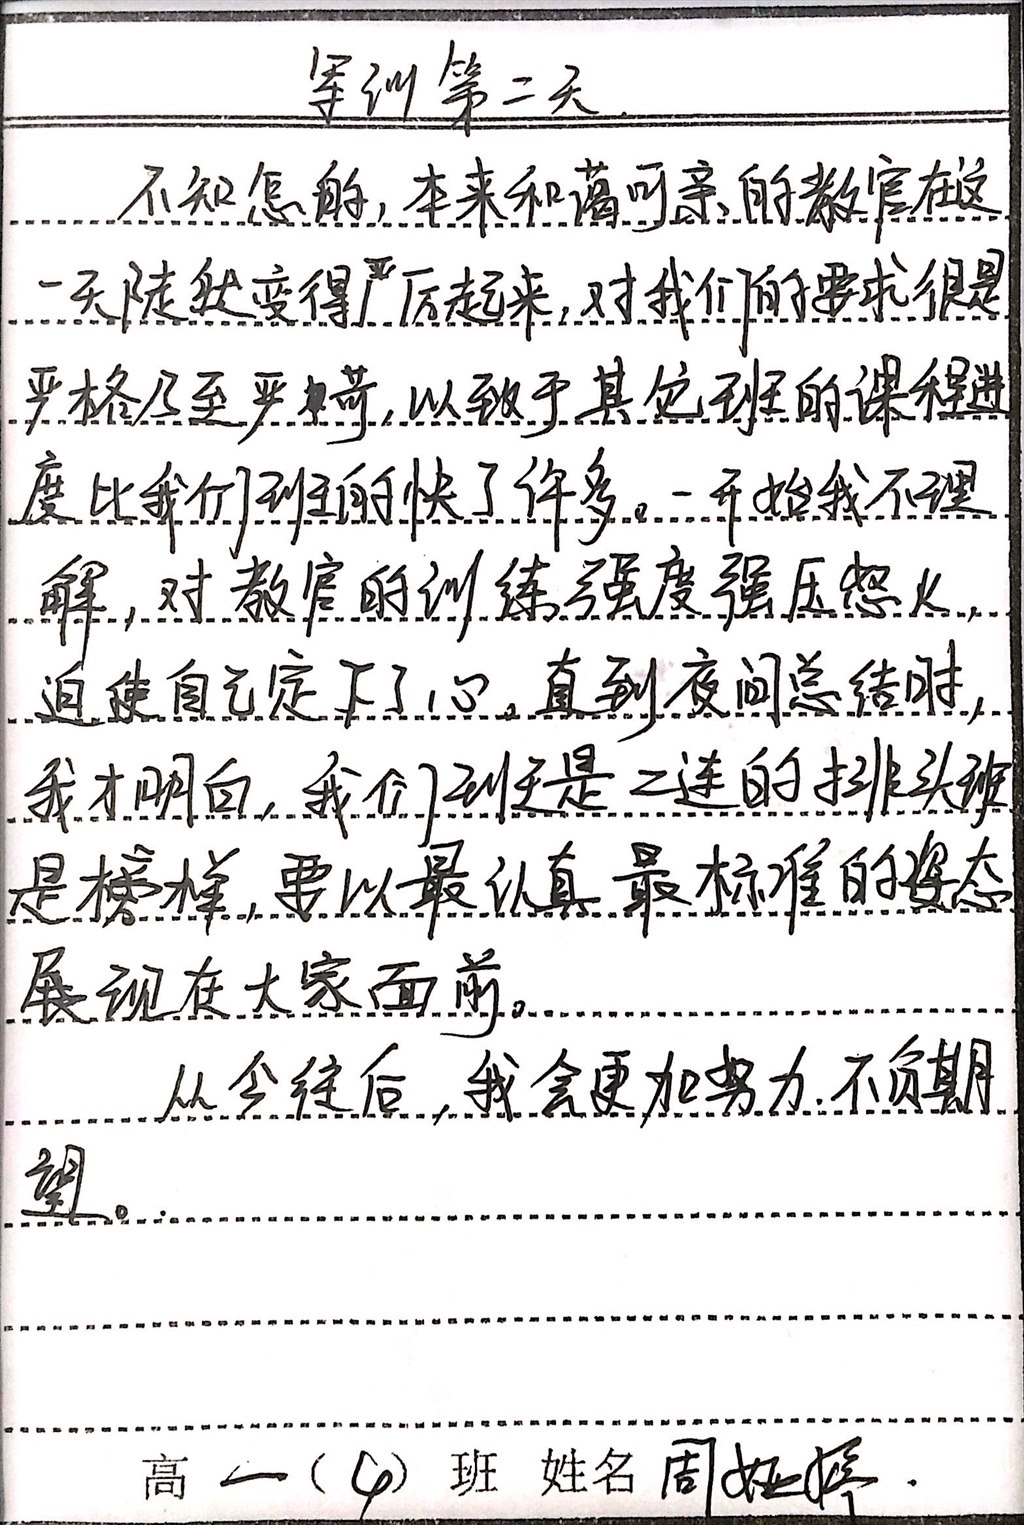 军训第二天
不知怎的，本来和蔼可亲的教官在这
一天陡然变得严厉起来，对我们的要求很是
严格乃至严苛，以致于其它班的课程进
度比我们班的快了许多。一开始我不理
解，对教官的训练强度强压怒火，
迫使自己定下了心。直到夜间总结时，
我才明白，我们班是二连的排头班
是榜样，要以最认真最标准的姿态
展现在大家面前。
从今往后，我会更加努力.不负期
望。
高一（4）班 姓名周娅婷.